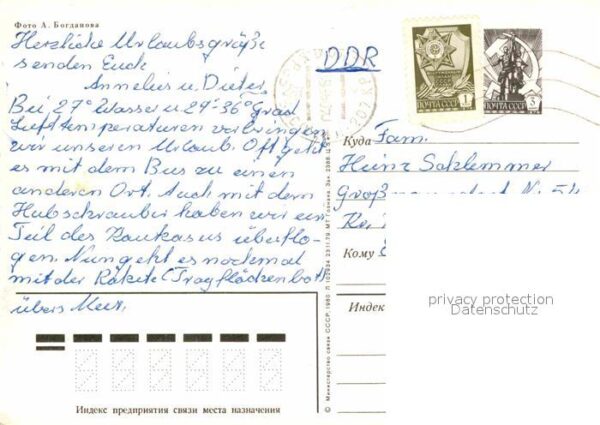 Фото А. Богданова
Herzliche Urlaubsgrüße
senden Euch
Annelies u. Dieter.
Bei 27° Wasser u. 29-36° Grad
Lufttemperaturen verbringen
wir unseren Urlaub. Oft geht
es mit dem Bus zu einen
anderen Ort. Auch mit dem
Hubschrauber haben wir ein
Teil des Kaukasus überflo-
gen. Nun geht es nochmal
mit der Rakete (Tragflächenboot)
übers Meer.
Индекс предприятия связи места назначения
© Министерство связи СССР, 1980
DDR
ПОЧТА СССР 1
ПОЧТА СССР 3
Куда Fam.
Heinz
Кому
Индек
privacy protection
Datenschutz